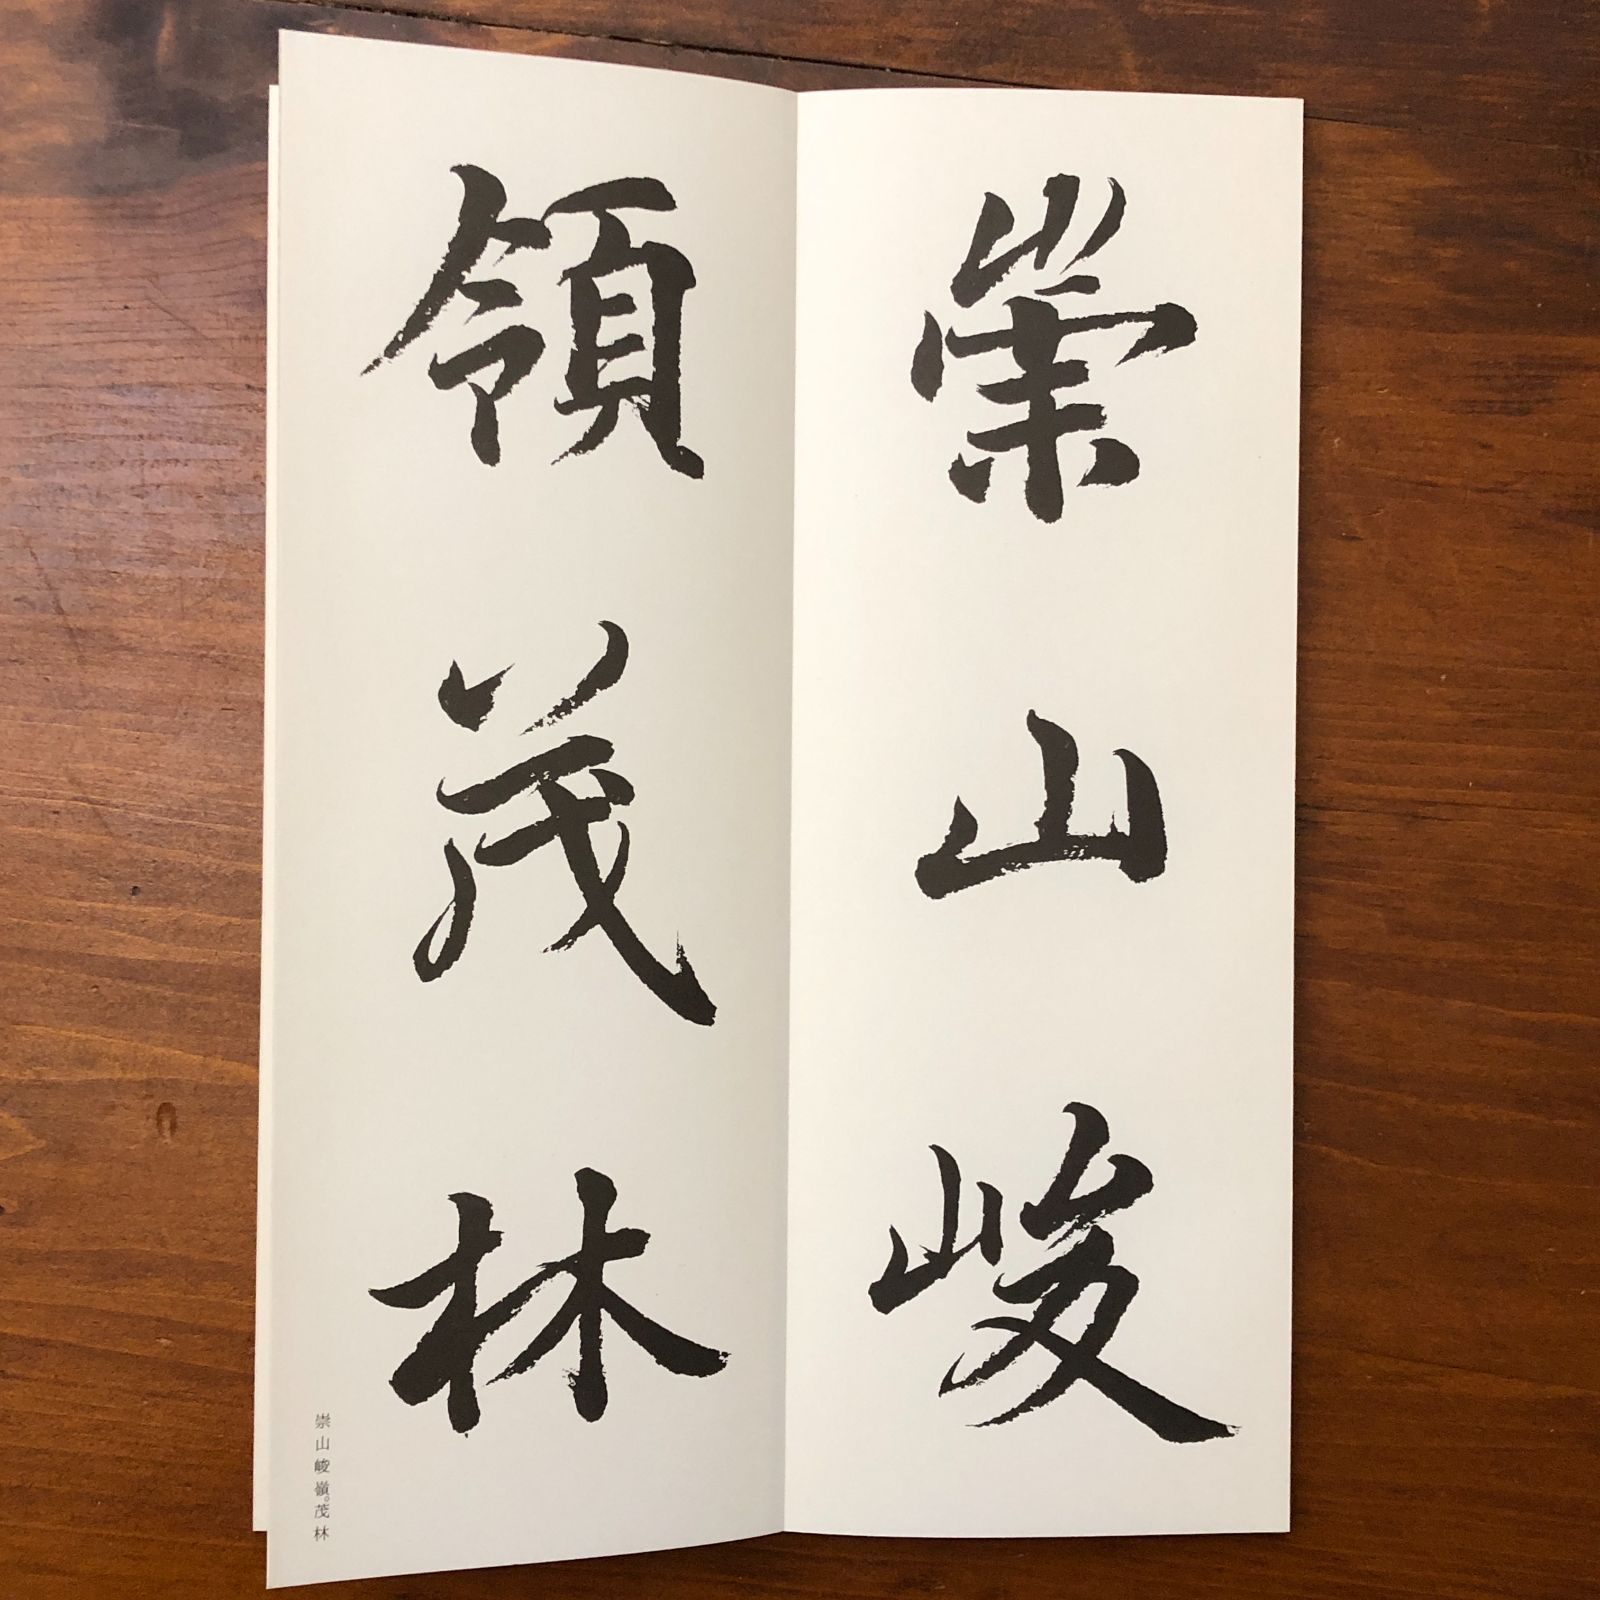 崇山峻
領茂林
崇山峻嶺。茂林